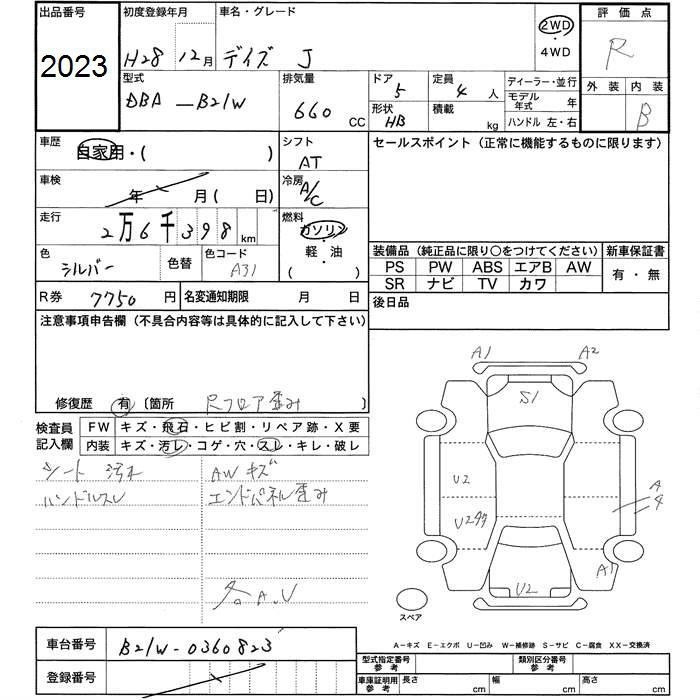 出品番号
2023
初度登録年月
H28 12月
車名・グレード
デイズ J
2WD
・
4WD
評価点
R
外装 内装
B
型式
DBA-B21W
排気量
660 CC
ドア
5
形状
HB
定員
4 人
積載
kg
ディーラー・並行
モデル年式 年
ハンドル 左・右
車歴
自家用・( )
シフト
AT
セールスポイント(正常に機能するものに限ります)
車検
年 月( 日)
冷房
A/C
走行
2万6千398 km
燃料
ガソリン
・
軽油
( )
色
シルバー
色替
色コード
A31
装備品(純正品に限り○をつけてください)
PS PW ABS エアB AW
SR ナビ TV カワ
新車保証書
有・無
R券 7750 円
名変通知期限 月 日
後日品
注意事項申告欄(不具合内容等は具体的に記入して下さい)
修復歴 有 〔箇所 Rフロア歪み 〕
検査員記入欄
FW キズ・飛石・ヒビ割・リペア跡・X要
内装 キズ・汚レ・コゲ・穴・スレ・キレ・破レ
シート 汚れ
ハンドルスレ
AWキズ
エンドパネル歪み
各A.U
A1
A2
S1
U2
U2タタ
A
4
A1
U2
スペア
A-キズ E-エクボ U-凹み W-補修跡 S-サビ C-腐食 XX-交換済
車台番号 B21W-0360823
登録番号
型式指定番号 参考
類別区分番号 参考
車庫証明用 参考
長さ cm
幅 cm
高さ cm